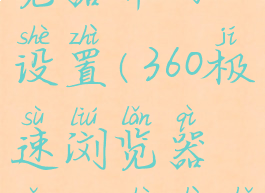 shè zhì jí
设置(360极
sù liú lǎn qì
速浏览器